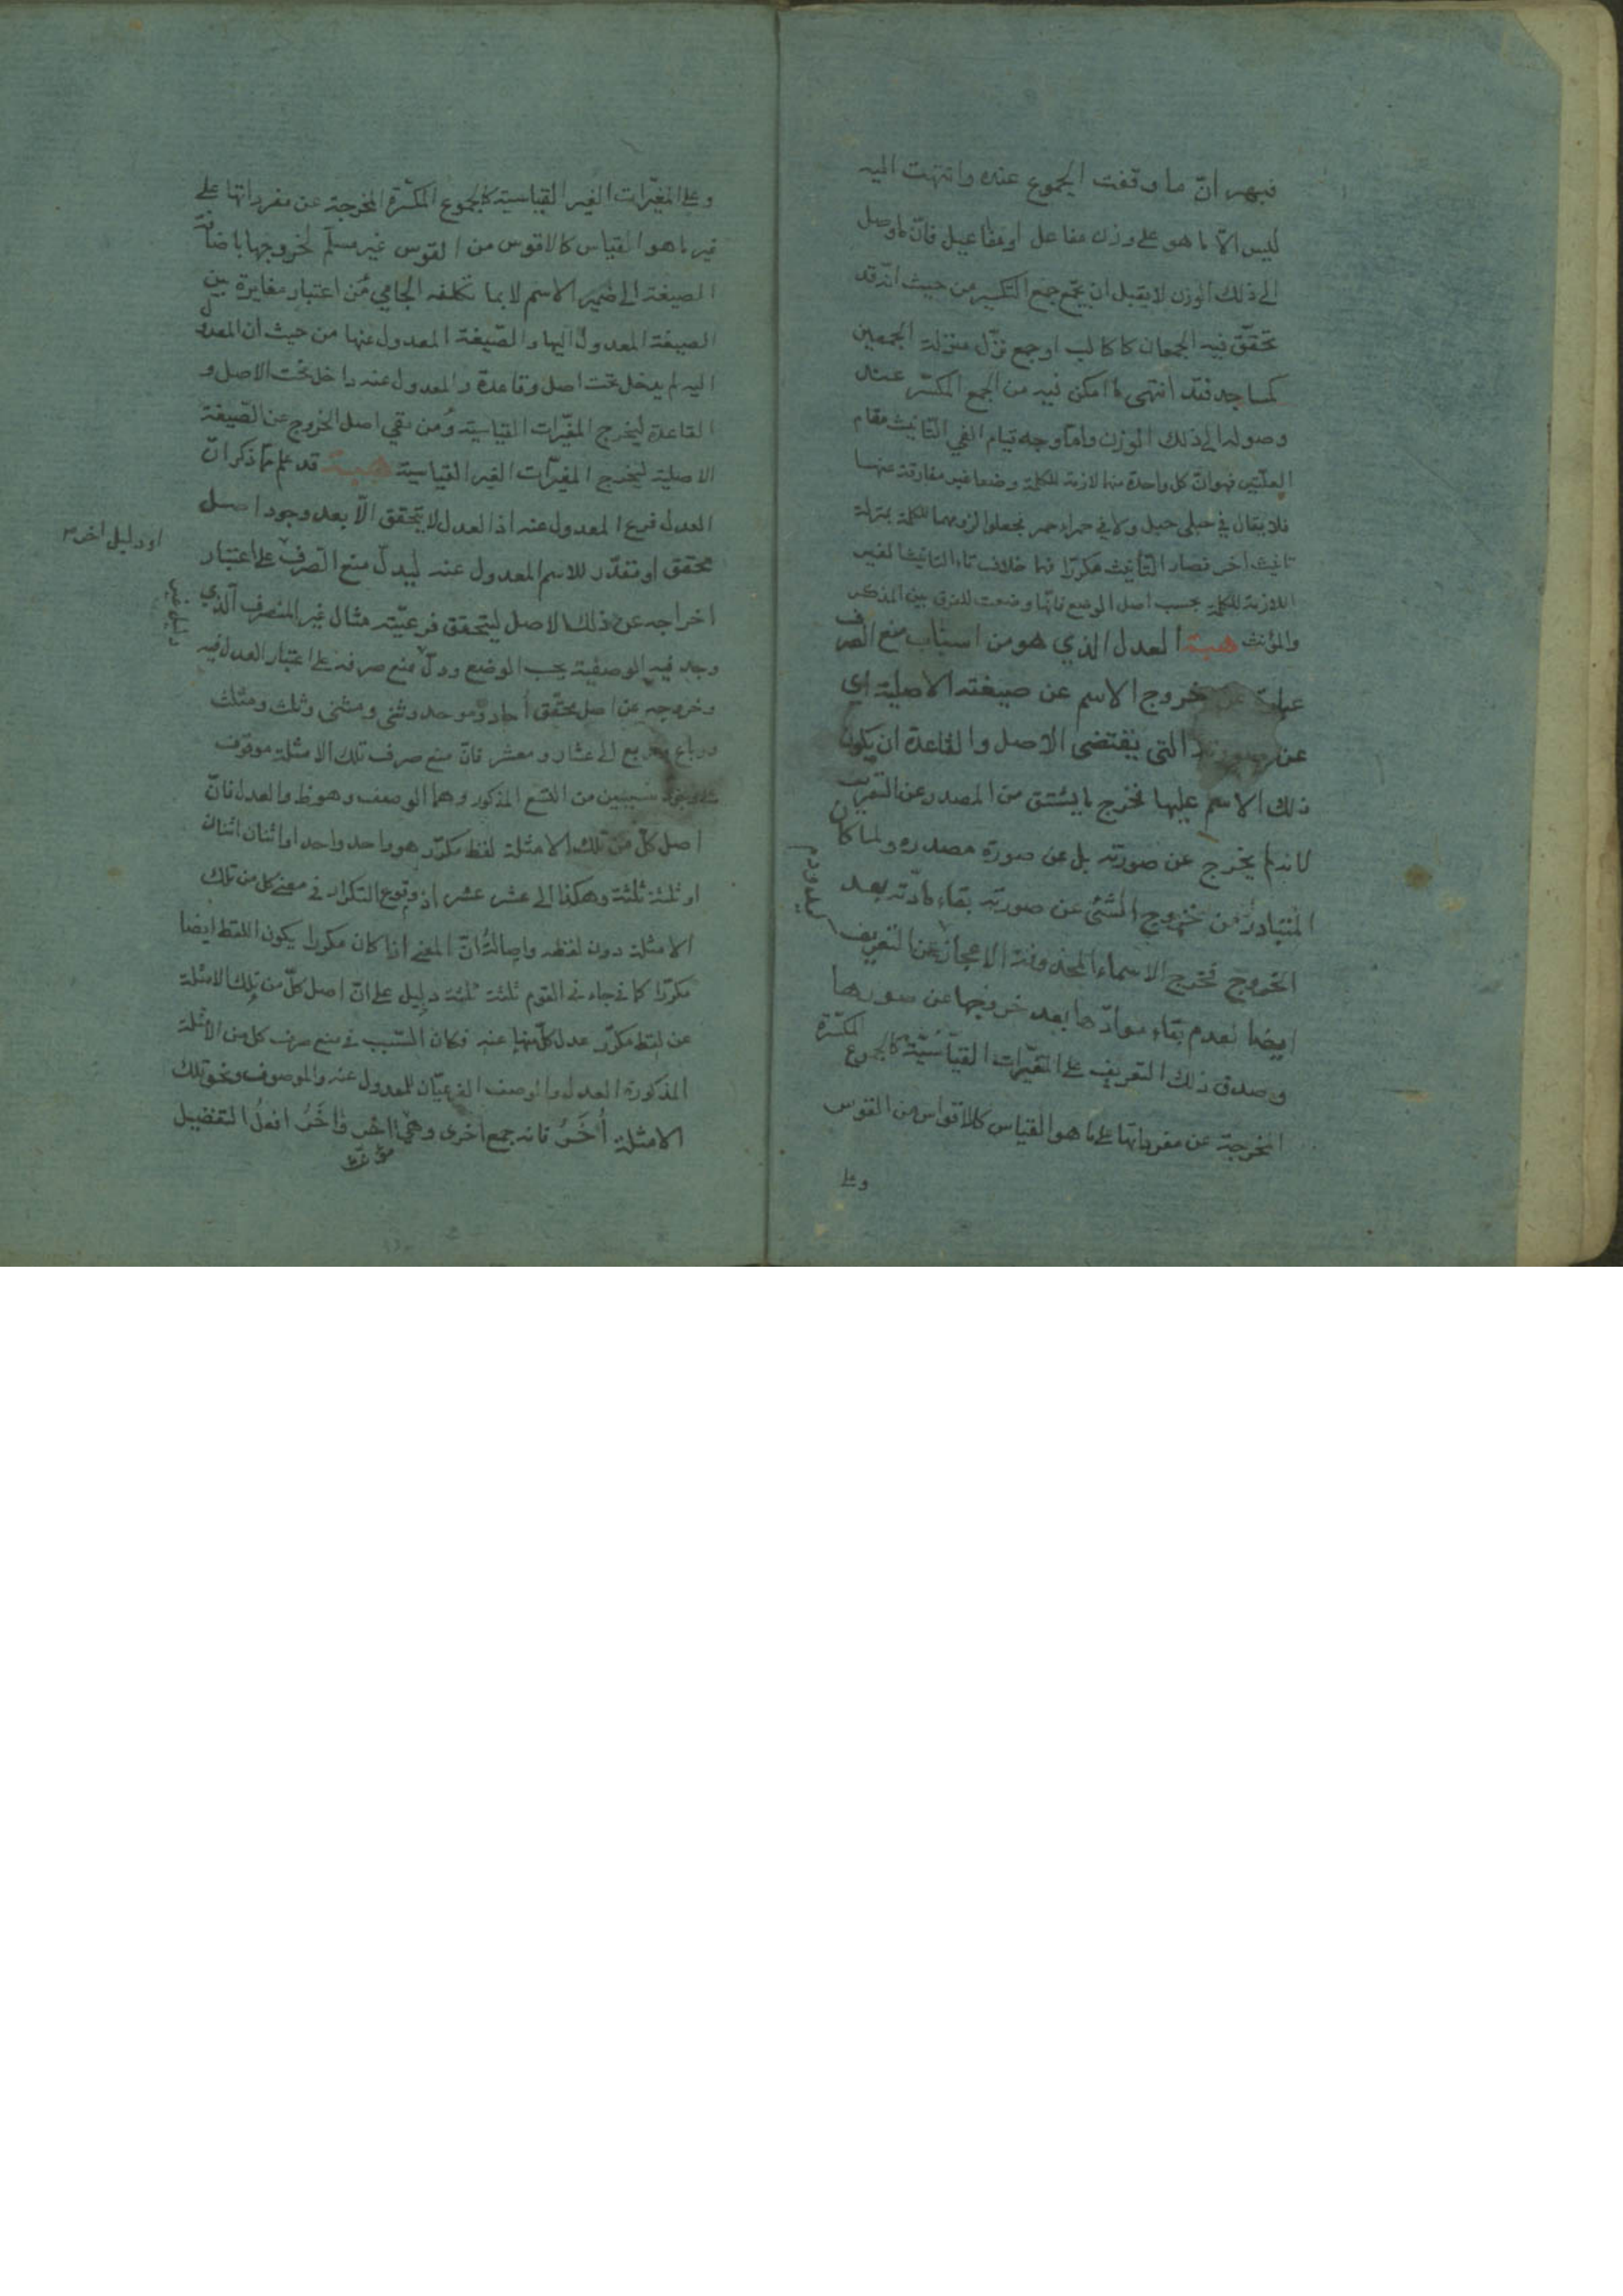 فهو انّ ما وقفت الجموع عنده وانتهت اليه
ليس الّا ما هو على وزن مفاعل او مفاعيل فانّ ما وصل
الى ذلك الوزن لا يقبل ان يجمع جمع التكسير من حيث انّه قد
تحقّق فيه الجمعان كاكالب او جمع نزّل منزلة الجمعين
كمساجد فقد انتهى ما امكن فيه من الجمع المكسّر عند
وصوله الى ذلك الوزن وامّا وجه قيام الفي التّانيث مقام
العلّتين فهو انّ كل واحدة منهما لازمة للكلمة وضعا غير مفارقة عنها
فلا يقال في حبلى حبل ولا في حمراء حمر فجعلوا لزومهما للكلمة بمنزلة
تانيث اخر فصار التّانيث مكرّرا فيهما خلاف تاء التانيث الغير
اللازمة للكلمة بحسب اصل الوضع فانّها وضعت للفرق بين المذكر
والمؤنث هبة العدل الذي هو من اسباب منع الصرف
عبارة عن خروج الاسم عن صيغته الاصلية اي
عن صورته التى يقتضى الاصل والقاعدة ان يكون
ذلك الاسم عليها فخرج ما يشتق من المصدر عن التعريف
لانه لم يخرج عن صورته بل عن صورة مصدره ولما كان
المتبادر من خروج الشئ عن صورته بقاء مادّته بعد
الخروج فخرج الاسماء المحذوفة الاعجاز عن التعريف
ايضا لعدم بقاء موادّها بعد خروجها عن صورها
وصدق ذلك التعريف على المغيّرات القياسيّة كالجموع المكسّرة
المخرجة عن مفرداتها على ما هو القياس كالاقواس من القوس
وعلى
وعلى المغيّرات الغير القياسية كالجموع المكسّرة المخرجة عن مفرداتها على
غير ما هو القياس كالاقوس من القوس غير مسلّم لخروجها باضافة
الصيغة الى ضمير الاسم لا بما تكلفه الجامي من اعتبار مغايرة بين
الصيغة المعدول اليها والصّيغة المعدول عنها من حيث ان المعدول
اليه لم يدخل تحت اصل وقاعدة والمعدول عنه داخل تحت الاصل و
القاعدة ليخرج المغيّرات القياسية ومن نفي اصل الخروج عن الصّيغة
الاصلية ليخرج المغيّرات الغير القياسية هبة قد علم ممّا ذكر انّ
العدل فرع المعدول عنه اذ العدل لا يتحقق الّا بعد وجود اصل
محقق او مقدّر للاسم المعدول عنه ليدلّ منع الصّرف على اعتبار
او دليل اخر
دليل غير
اخراجه عن ذلك الاصل ليتحقق فرعيّته مثال غير المنصرف الّذي
وجد فيه الوصفية بحسب الوضع ودلّ منع صرفه على اعتبار العدل فيه
وخروجه عن اصل محقّق أحاد وموحد وثنى ومثنى وثلث ومثلث
ورباع ومربع الى عشار ومعشر فانّ منع صرف تلك الامثلة موقوف
على وجود سببين من التسع المذكور وهما الوصف وهو ظ والعدل فانّ
اصل كلّ من تلك الامثلة لفظ مكرّر هو واحد واحد او اثنان اثنان
او ثلثة ثلثة وهكذا الى عشر عشر اذ وقوع التكرار في معنى كل من تلك
الامثلة دون لفظه واصالة انّ المعنى اذا كان مكررا يكون اللفظ ايضا
مكرّرا كما في جاءني القوم ثلثة ثلثة دليل على انّ اصل كلّ من تلك الامثلة
عن لفظ مكرّر عدل كلّ منها عنه فكان السّبب في منع صرف كل من الامثلة
المذكورة العدل والوصف الفرعيّان للمعدول عنه والموصوف ونحو تلك
الامثلة أُخَرُ فانه جمع اخرى وهي اخر واٰخَرُ افعلُ التفضيل
مؤنث